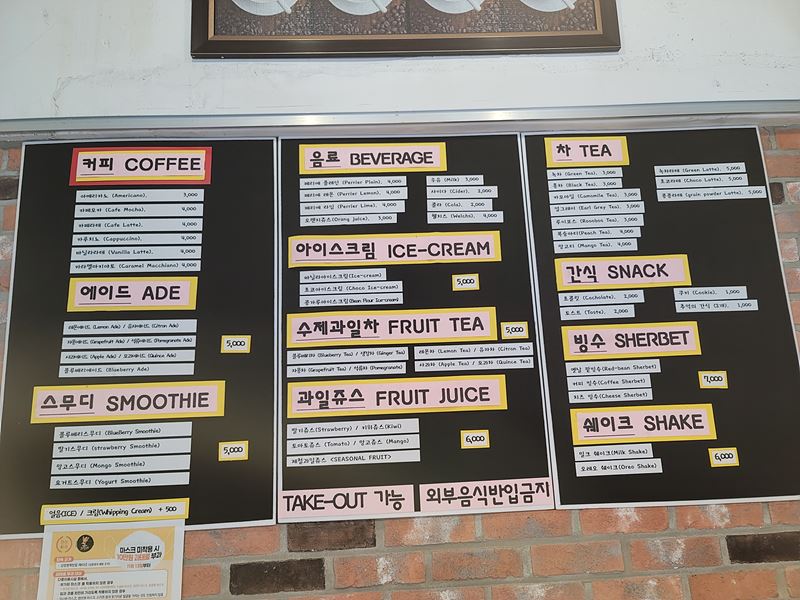 커피 COFFEE
아메리카노 (Americano), 3,000
카페모카 (Cafe Mocha), 4,000
카페라떼 (Cafe Latte), 4,000
카푸치노 (Cappuccino), 4,000
바닐라라떼 (Vanilla Latte), 4,000
카라멜마키아또 (Caramel Macchiano) 4,000
에이드 ADE
레몬에이드 (Lemon Ade) / 유자에이드 (Citron Ade)
자몽에이드 (Grapefruit Ade) / 석류에이드 (Pomegranate Ade)
사과에이드 (Apple Ade) / 모과에이드 (Quince Ade)
블루베리에이드 (Blueberry Ade)
5,000
스무디 SMOOTHIE
블루베리스무디 (BlueBerry Smoothie)
딸기스무디 (strawberry Smoothie)
망고스무디 (Mongo Smoothie)
요거트스무디 (Yogurt Smoothie)
5,000
얼음(ICE) / 크림(Whipping Cream) + 500
마스크 미착용 시
부과
음료 BEVERAGE
페리에 플레인 (Perrier Plain), 4,000
페리에 레몬 (Perrier Lemon), 4,000
페리에 라임 (Perrier Lime), 4,000
오렌지쥬스 (Orang Juice), 3,000
우유 (Milk) 3,000
사이다 (Cider), 2,000
콜라 (Cola), 2,000
웰치스 (Welchs), 4,000
아이스크림 ICE-CREAM
바닐라아이스크림 (Ice-cream)
초코아이스크림 (Choco Ice-cream)
콩가루아이스크림 (Bean Flour Ice-cream)
5,000
수제과일차 FRUIT TEA
5,000
블루베리차 (Blueberry Tea) / 생강차 (Ginger Tea)
자몽차 (Grapefruit Tea) / 석류차 (Pomegranate)
레몬차 (Lemon Tea) / 유자차 (Citron Tea)
사과차 (Apple Tea) / 모과차 (Quince Tea)
과일쥬스 FRUIT JUICE
딸기쥬스(Strawberry) / 키위쥬스(Kiwi)
토마토쥬스 (Tomato) / 망고쥬스 (Mango)
제철과일쥬스 <SEASONAL FRUIT>
6,000
TAKE-OUT 가능
외부음식반입금지
차 TEA
녹차 (Green Tea), 3,000
홍차 (Black Tea), 3,000
카모마일 (Camomile Tea), 3,000
얼그레이 (Earl Grey Tea), 3,000
루이보스 (Rooobos Tea), 3,000
복숭아티(Peach Tea), 4,000
망고티 (Mango Tea), 4,000
녹차라떼 (Green Latte), 5,000
초코라떼 (Choco Latte), 5,000
곡물라떼 (grain powder Latte), 5,000
간식 SNACK
초콜릿 (Cocholate), 2,000
토스트 (Toste), 2,000
쿠키 (Cookie), 1,000
추억의 간식 (2개), 1,000
빙수 SHERBET
옛날 팥빙수(Red-bean Sherbet)
커피 빙수(Coffee Sherbet)
치즈 빙수(Cheese Sherbet)
7,000
쉐이크 SHAKE
밀크 쉐이크(Milk Shake)
오레오 쉐이크(Oreo Shake)
6,000